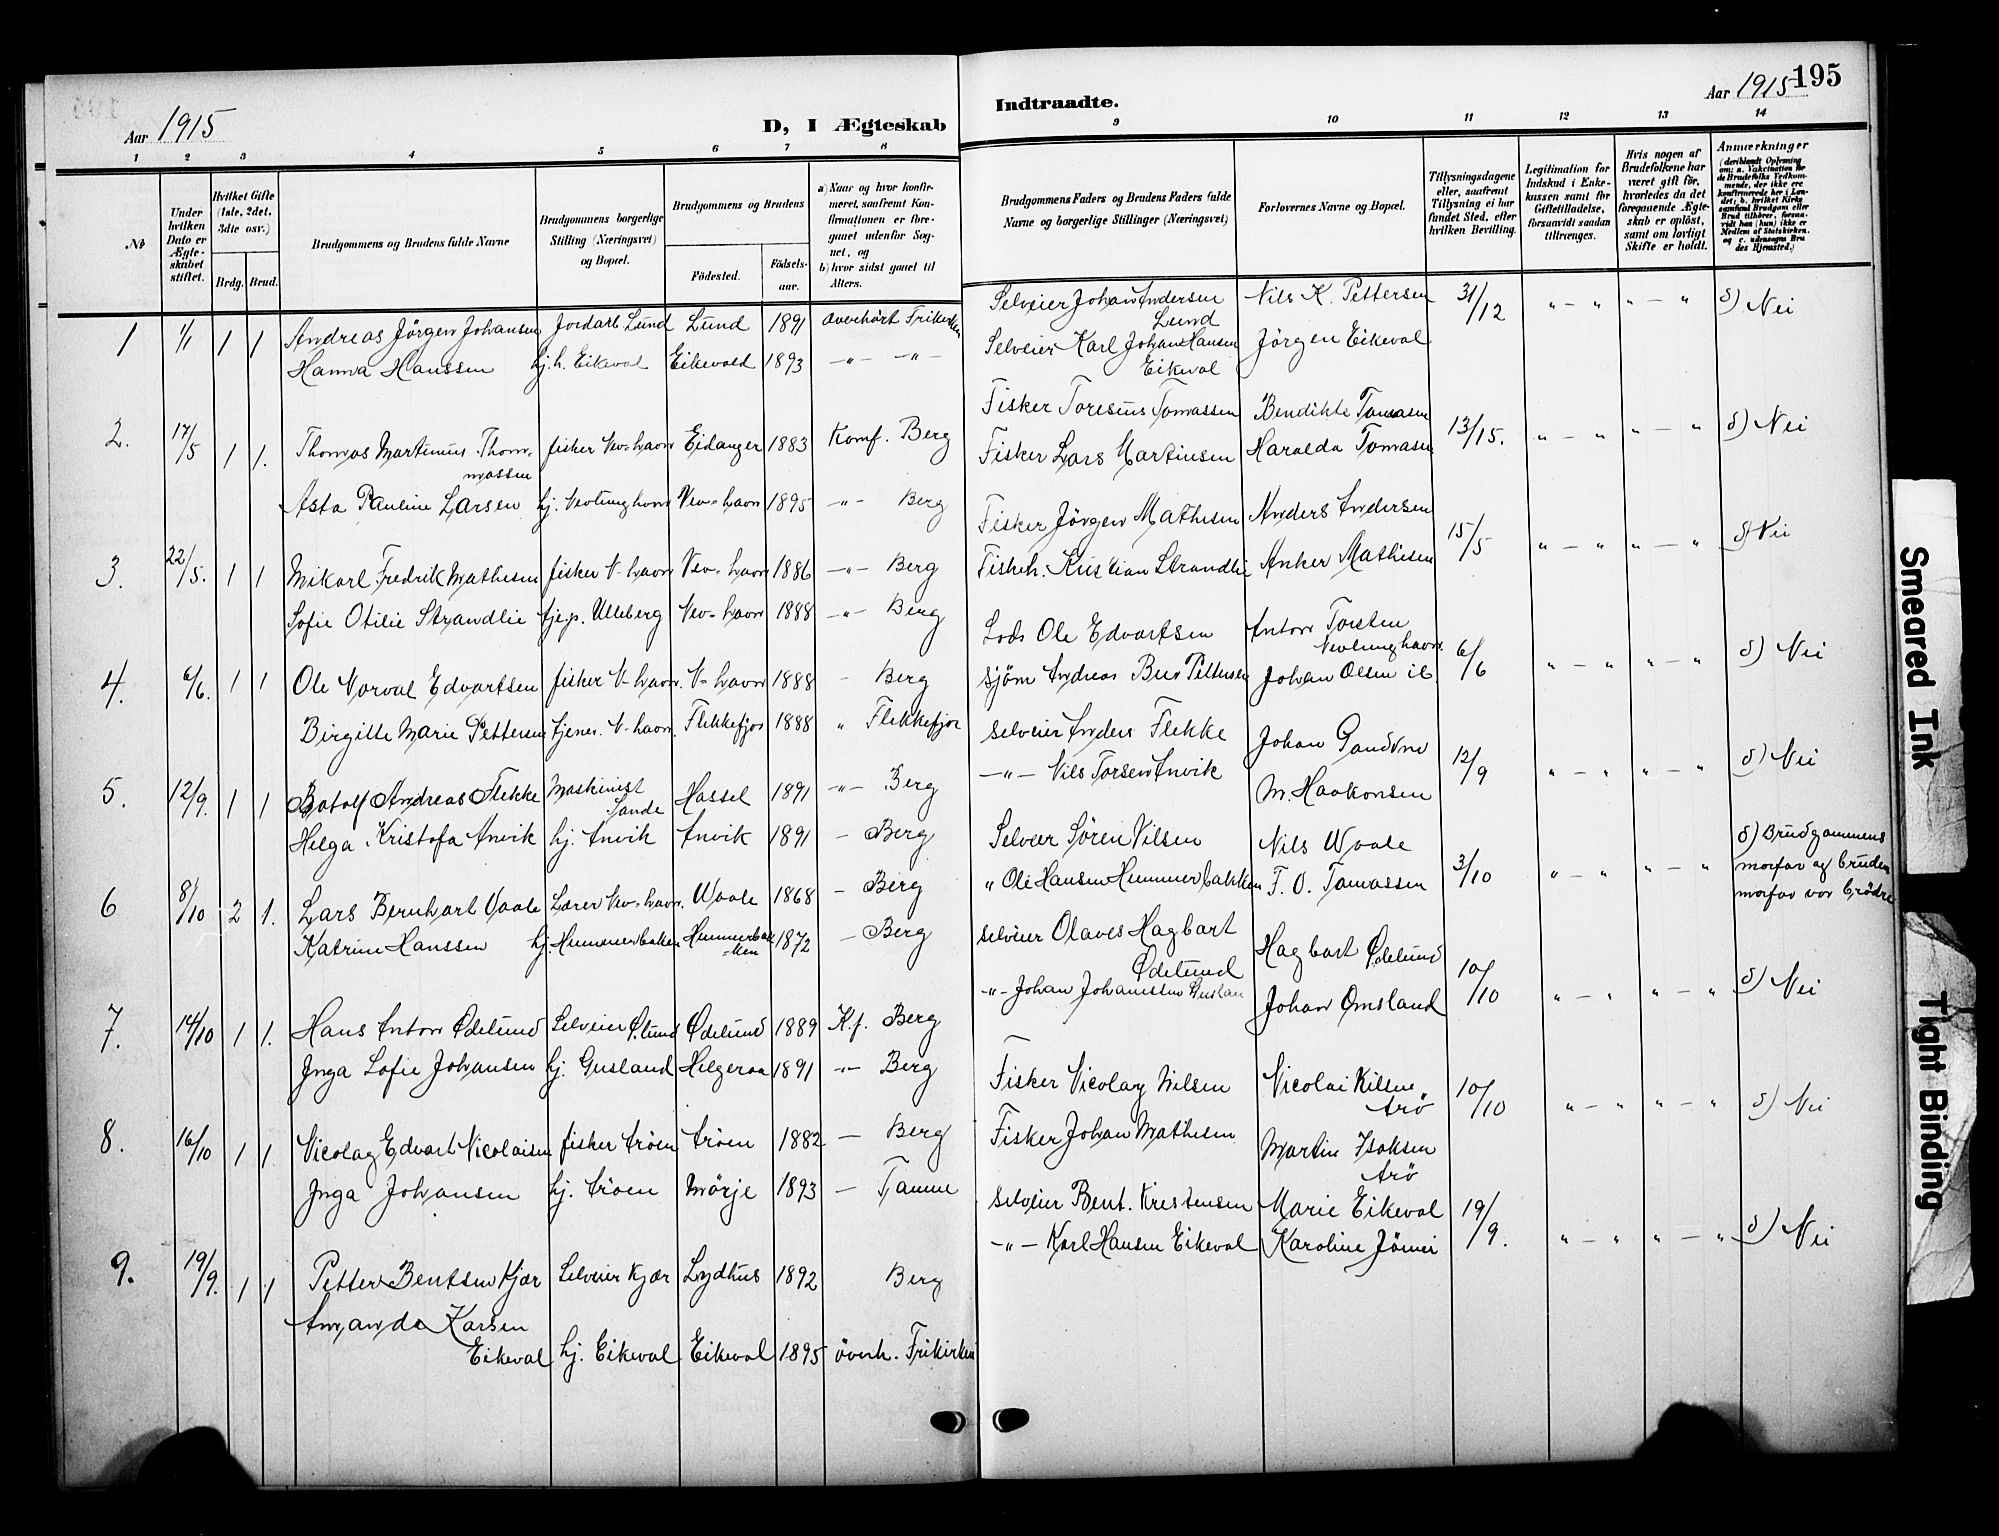 Aar 1915
D, I Ægteskab
Indtraadte.
Aar 1915
195
1 2 3 4 5 6 7 8 9 10 11 12 13 14
No
Under hvilken Dato er Ægteskabet stiftet.
Hvilket Gifte (1ste, 2det, 3dte osv.)
Brdg. Brud.
Brudgommens og Brudens fulde Navne
Brudgommens borgerlige Stilling (Næringsvei) og Bopæl.
Brudgommens og Brudens
Födested. Födselsaar.
a) Naar og hvor konfirmeret, saafremt Konfirmationen er foregaaet udenfor Sognet, og
b) hvor sidst gaaet til Alters.
Brudgommens Faders og Brudens Faders fulde Navne og borgerlige Stillinger (Næringsvei)
Forlovernes Navne og Bopæl.
Tillysningsdagene eller, saafremt Tillysning ei har fundet Sted, efter hvilken Bevilling.
Legitimation for Indskud i Enkekassen samt for Giftetilladelse, forsaavidt saadan tiltrænges.
Hvis nogen af Brudefolkene har været gift för, hvorledes da det foregaaende Ægteskab er oplöst, samt om lovligt Skifte er holdt.
Anmærkninger
1 1/1 1 1 Andreas Jörgen Johansen Jordarb Lund Lund 1891 Overhört Frikirken Selveier Johan Andersen Lund Nils K. Pettersen 31/12 " — " " — " d) Nei
Hanna Hanssen hj. h. Eikeval Eikevald 1893 —"— —"— Selveier Karl Johan Hansen Eikeval Jörgen Eikeval
2. 17/5 1 1. Thomas Martinius Thommassen fisker Nev=havn Eidanger 1883 Konf. Berg Fisker Toresius Tomassen Bendikte Tomasen 13/15. " — " " — " d) Nei
Asta Pauline Larsen hj. Nevlunghavn Nev=havn 1895 —"— Berg Fisker Lars Martinsen Haralda Tomasen
3. 22/5. 1 1 Mikael Fredrik Mathesen fisker N-havn Nev=havn 1886 —"— Berg Fisker Jörgen Mathesen Anders Andersen 15/5 " — " " — " d) Nei
Sofie Otilie Strandlie tjep. Ulleberg Nev=havn 1888 —"— Berg Fiskeh. Kristian Strandli Anker Mathesen
4. 6/6. 1 1 Ole Norval Edvartsen fisker N-havn. N=havn 1888 - Berg Lods Ole Edvartsen Anton Torsten Nevlunghavn. 6/6 " — " " — " d) Nei
Birgitte Marie Pettersen tjenes. N-havn. Flekkefjor 1888 " Flekkefjor sjöm Andreas Ber Pettersen Johan Olsen ib.
5. 12/9. 1 1 Botolf Andreas Flekke Maskinist Sande Hassel 1891 —"— Berg selveier Anders Flekke Johan 12/9 " — " " — " d) Nei
Helga Kristofa Anvik hj. Anvik Anvik 1891 — Berg —"— Nils Torsen Anvik M. Haakonsen
6 8/10 2 1. Lars Bernhart Vaale Lærer Nev=havn. Vaale 1868 — Berg Selveier Sören Nilsen Nils Waale 3/10 " — " " — " d) Brudgommens morfar og brudens morfar var brödre
Katrine Hanssen hj. Hummerbaken Hummerbakken 1872 — Berg " Ole Hansen Hummerbakken T. O. Tomassen
7. 14/10 1 1. Hans Anton Ødelund Selveier Ø.lund Ødelund 1889 K.f. Berg selveier Olaves Hagbart Ødelund Hagbart Ødelund 10/10 " — " " — " d) Nei
Inga Sofie Johansen hj. Gusland Helgeroa 1891 —"— Berg —"— Johan Johanssen Gusland Johan Omsland
8. 16/10 1 1. Nicolag Edvart Nicolaisen fisker Aröen Aröen 1882 — Berg Fisker Nicolay Nilsen Nicolai Nilsen Arö 10/10 " — " " — " d) Nei
Inga Johansen hj. Aröen Mörje 1893 — Tanum Fisker Johan Mathesen Martin Isaksen Arö
9. 19/9. 1 1 Petter Bentsen Kjær Selveier Kjær Lydhus 1892 Berg selveier Bent. Kristensen Marie Eikeval 19/9. " — " " — " d) Nei
Amanda Karsen Eikeval hj. Eikeval Eikeval 1895 överh. Frikirken —"— Karl Hansen Eikeval Karoline
Smeared Ink
Tight Binding